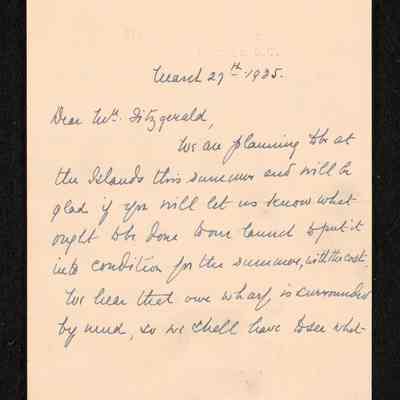 March 27th 1935.
Dear Mr. Fitzgerald,
We are planning to be at
the Islands this summer and will be
glad if you will let us know what
ought to be done to our launch to put it
into condition for the summer, with the cost.
We hear that our wharf is surrounded
by mud, so we shall have to see what